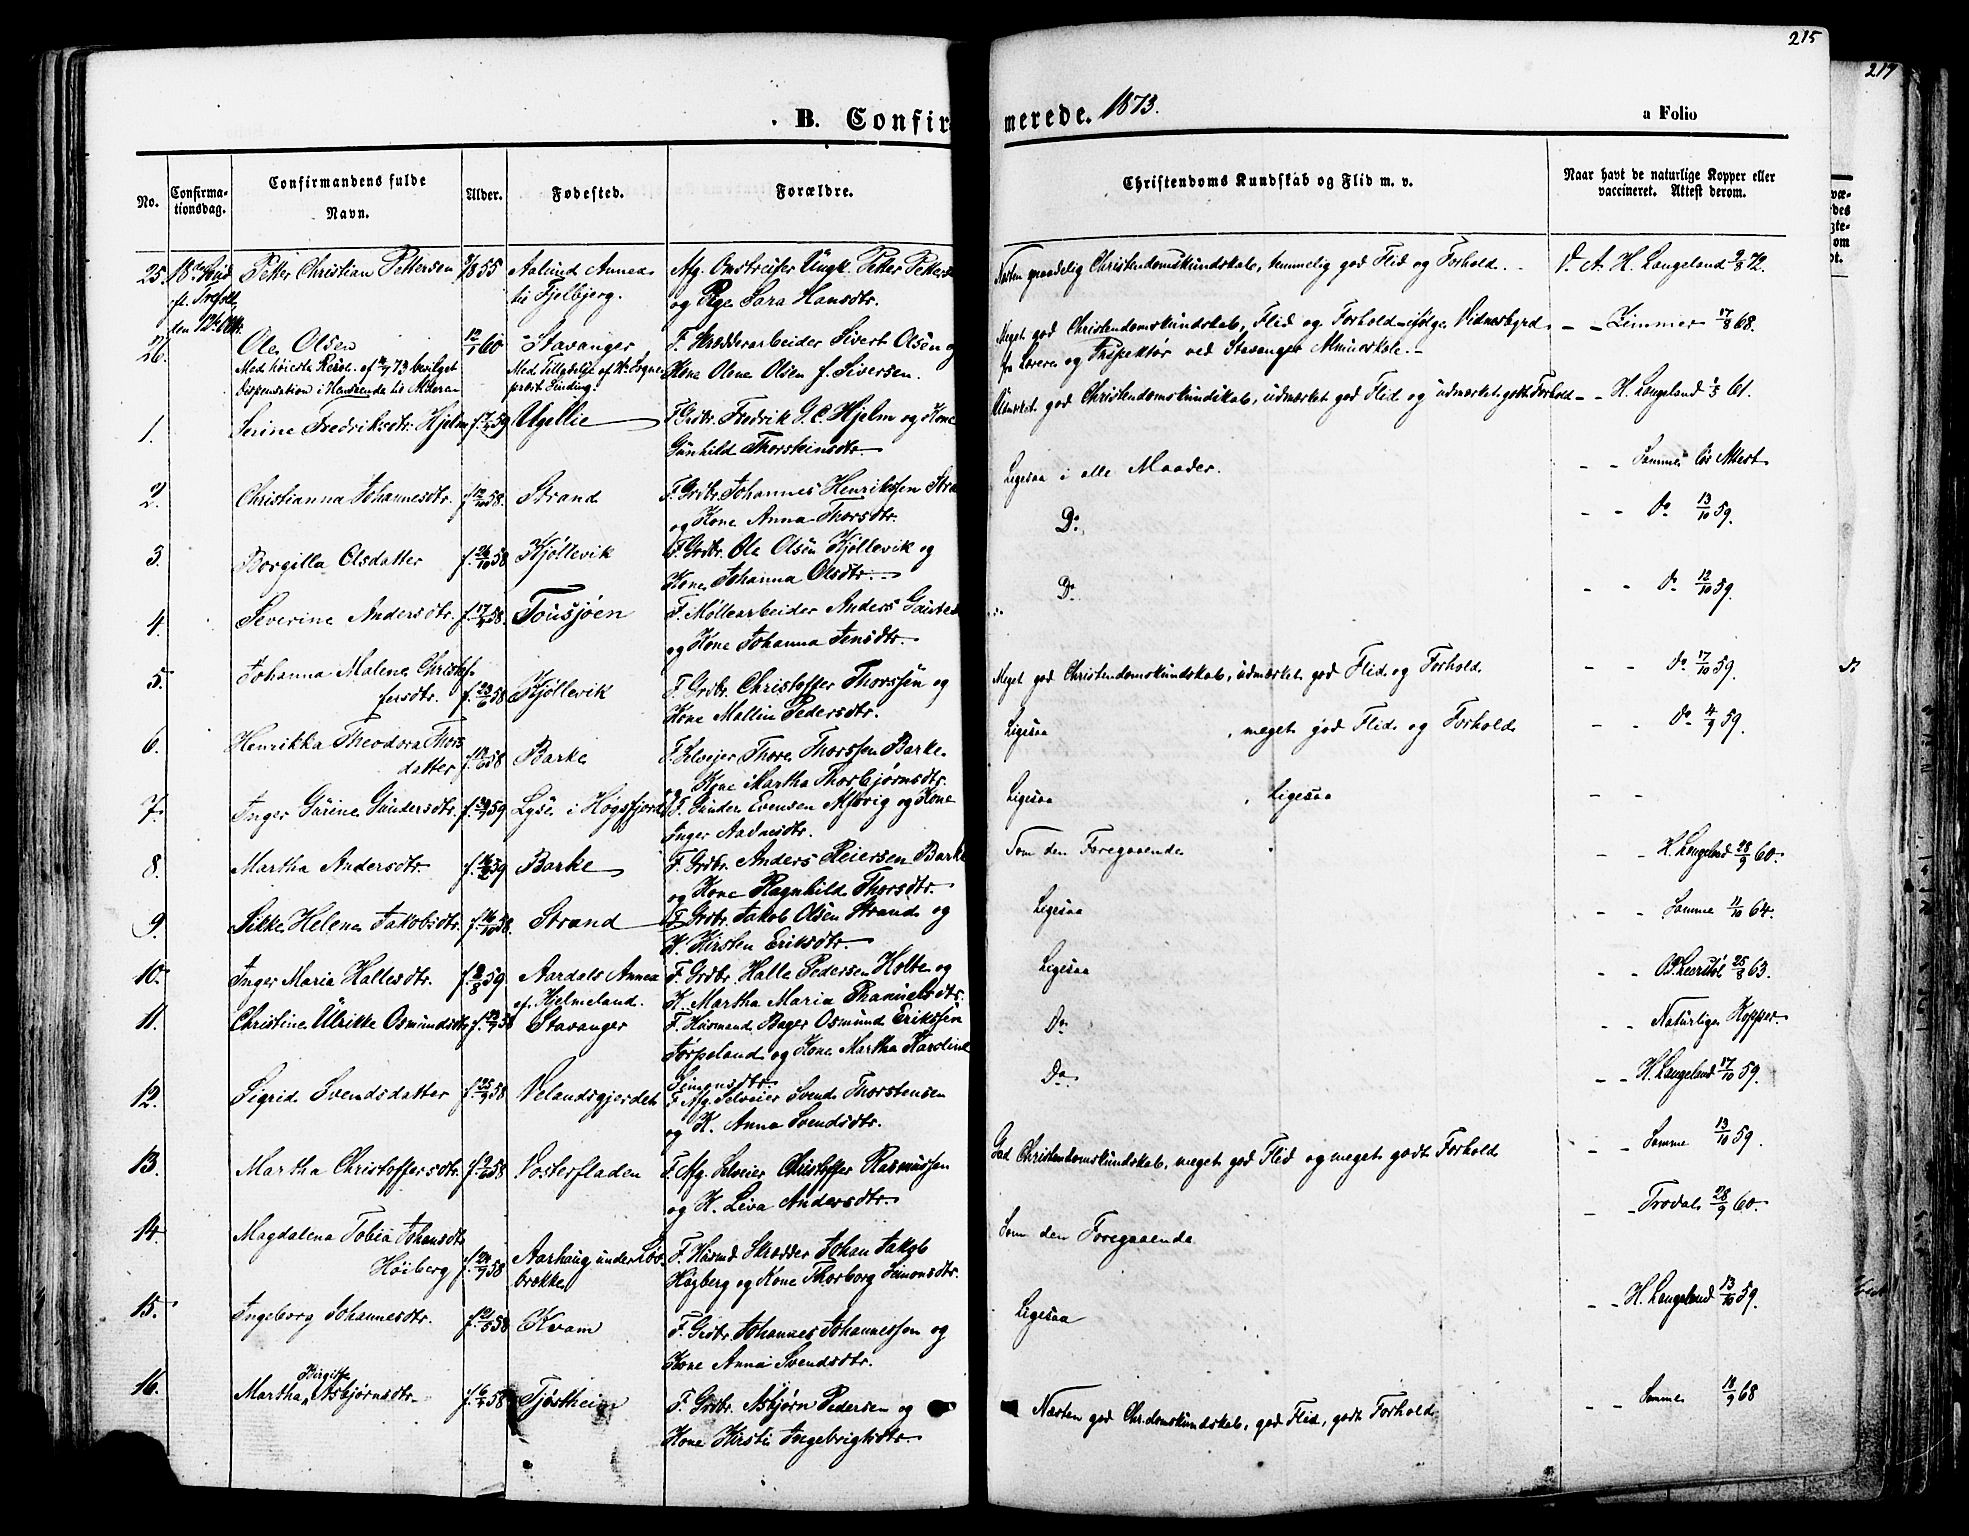 215
217
B. Confirmerede. 1873.
a Folio
No.
Confirmationsdag.
Confirmandens fulde Navn.
Alder.
Fødested.
Forældre.
Christendoms Kundskab og Flid m. v.
Naar havt de naturlige Kopper eller vaccineret. Attest derom.
25. Petter Christian Pettersen 1855 Aalund Annex til Fjelbjerg. Afg. Omstreifer Ungk. Petter Petters og Pige Sara Hansdtr. Næsten maadelig Christendomskundskab, temmelig god Flid og Forhold. V. A. H. Langeland 9/8 72.
26. Ole Olsen 12/1 60 Stavanger F. Skrædderarbeider Sivert Olsen og Kone Olene Olsen f. Siversen. Meget god Christendomskundskab, Flid og Forhold ifølge Vidnesbyrd fra Lærere og Inspektør ved Stavanger Almueskole. - - Zimmer 17/8 68.
Med høieste Resol. af 73 bevilget Dispensation i Henseende til Alderen
Med Tilladelse af Sogneprest
1. Serine Fredriksdtr. Hjelm 59 Ugellie F. Grdbr. Fredrik G. C. Hjelm og Kone Gunhild Thorskinsdtr. Udmærket god Christendomskundskab, udmærket god Flid og udmærket godt Forhold - - H. Langeland 61.
2. Christianna Johannesdtr. f. 12/10 58. Strand F. Grdbr. Johannes Henriksen Stra og Kone Anna Thorsdtr. Ligesaa i alle Maader. - - Samme Attest
3. Borgilla Olsdatter f. 26/10 58 Kjøllevik F. Grdbr. Ole Olsen Kjøllevik og Kone Johanna Olsdtr. Do - - Do 13/10 59.
4. Severine Andersdtr. f. 17/4 58. Tousjøen F. Møllearbeider Anders og Kone Johanna Jensdtr. Do - - Do 12/10 59.
5. Johanna Malene Christoffersdtr. f. 23/6 58 Kjøllevik F. Grdbr. Christoffer Thorssen og Kone Mallin Pedersdtr. Meget god Christendomskundskab, udmærket god Flid og Forhold. - - Do 17/10 59.
6. Henrikka Theodora Thorsdatter 58 Barke F. Selveier Thore Thorssen Barke og Kone Martha Thorbjørnsdtr. Ligesaa, meget god Flid og Forhold - - Do 4/9 59.
7. Inger Gurine Gundersdtr. 59 Lyse i Høgsfjord F. Gunder Evensen og Kone Inger Aadnesdtr. Ligesaa, Ligesaa - -
8. Martha Andersdtr. 59 Barke F. Grdbr. Anders Reiersen Barke og Kone Ragnhild Thorsdtr. Som den Foregaaende - - H. Langeland 28/9 60.
9. Sikke Helene Jakobsdtr. f. 16/10 58. Strand F. Grdbr. Jakob Olsen Strand og K. Kirsten Eriksdtr. Ligesaa - - Samme 11/10 64.
10. Inger Maria Hallesdtr. 59 Aardals Annex af Hjelmeland. F. Grdbr. Halle Pedersen Holte og K. Martha Maria Thanuelsdtr. Ligesaa - - 25/8 63.
11. Christine Ulrikke Osmundsdtr 58 Stavanger F. Husmand Bager Osmund Erikssen Jørpeland og Kone Martha Karoline Simonsdtr. Do - - Naturlige Kopper.
12. Sigrid Svendsdatter f. 25/9 58 Velandsgjerdet F. Afg. Selveier Svend Thorstensen og K. Anna Svendsdtr. Do - - H. Langeland 17/10 59.
13. Martha Christoffersdtr. 58 Vosterfladen F. Afg. Selveier Christoffer Rasmussen og K. Liva Andersdtr. God Christendomskundskab, meget god Flid og meget godt Forhold - - Samme 13/10 59.
14. Magdalena Tobia Johansdtr Høiberg 58 Aarhaug under F. Husmd Skrædder Johan Jakob Høyberg og Kone Thorborg Simonsdtr. Som den Foregaaende - - Trodal 28/9 60.
15. Ingeborg Johannesdtr. 58 Kvam F. Grdbr. Johannes Johannessen og Kone Anna Svendsdtr. Ligesaa - - H. Langeland 13/10 59.
16. Martha Birgitte Asbjørnsdtr. 58 Tjøstheim F. Grdbr. Asbjørn Pedersen og Kone Kirsti Ingebrigtsdtr. Næsten god Chr.domskundskab, god Flid, godt Forhold - - Samme 18/9 68